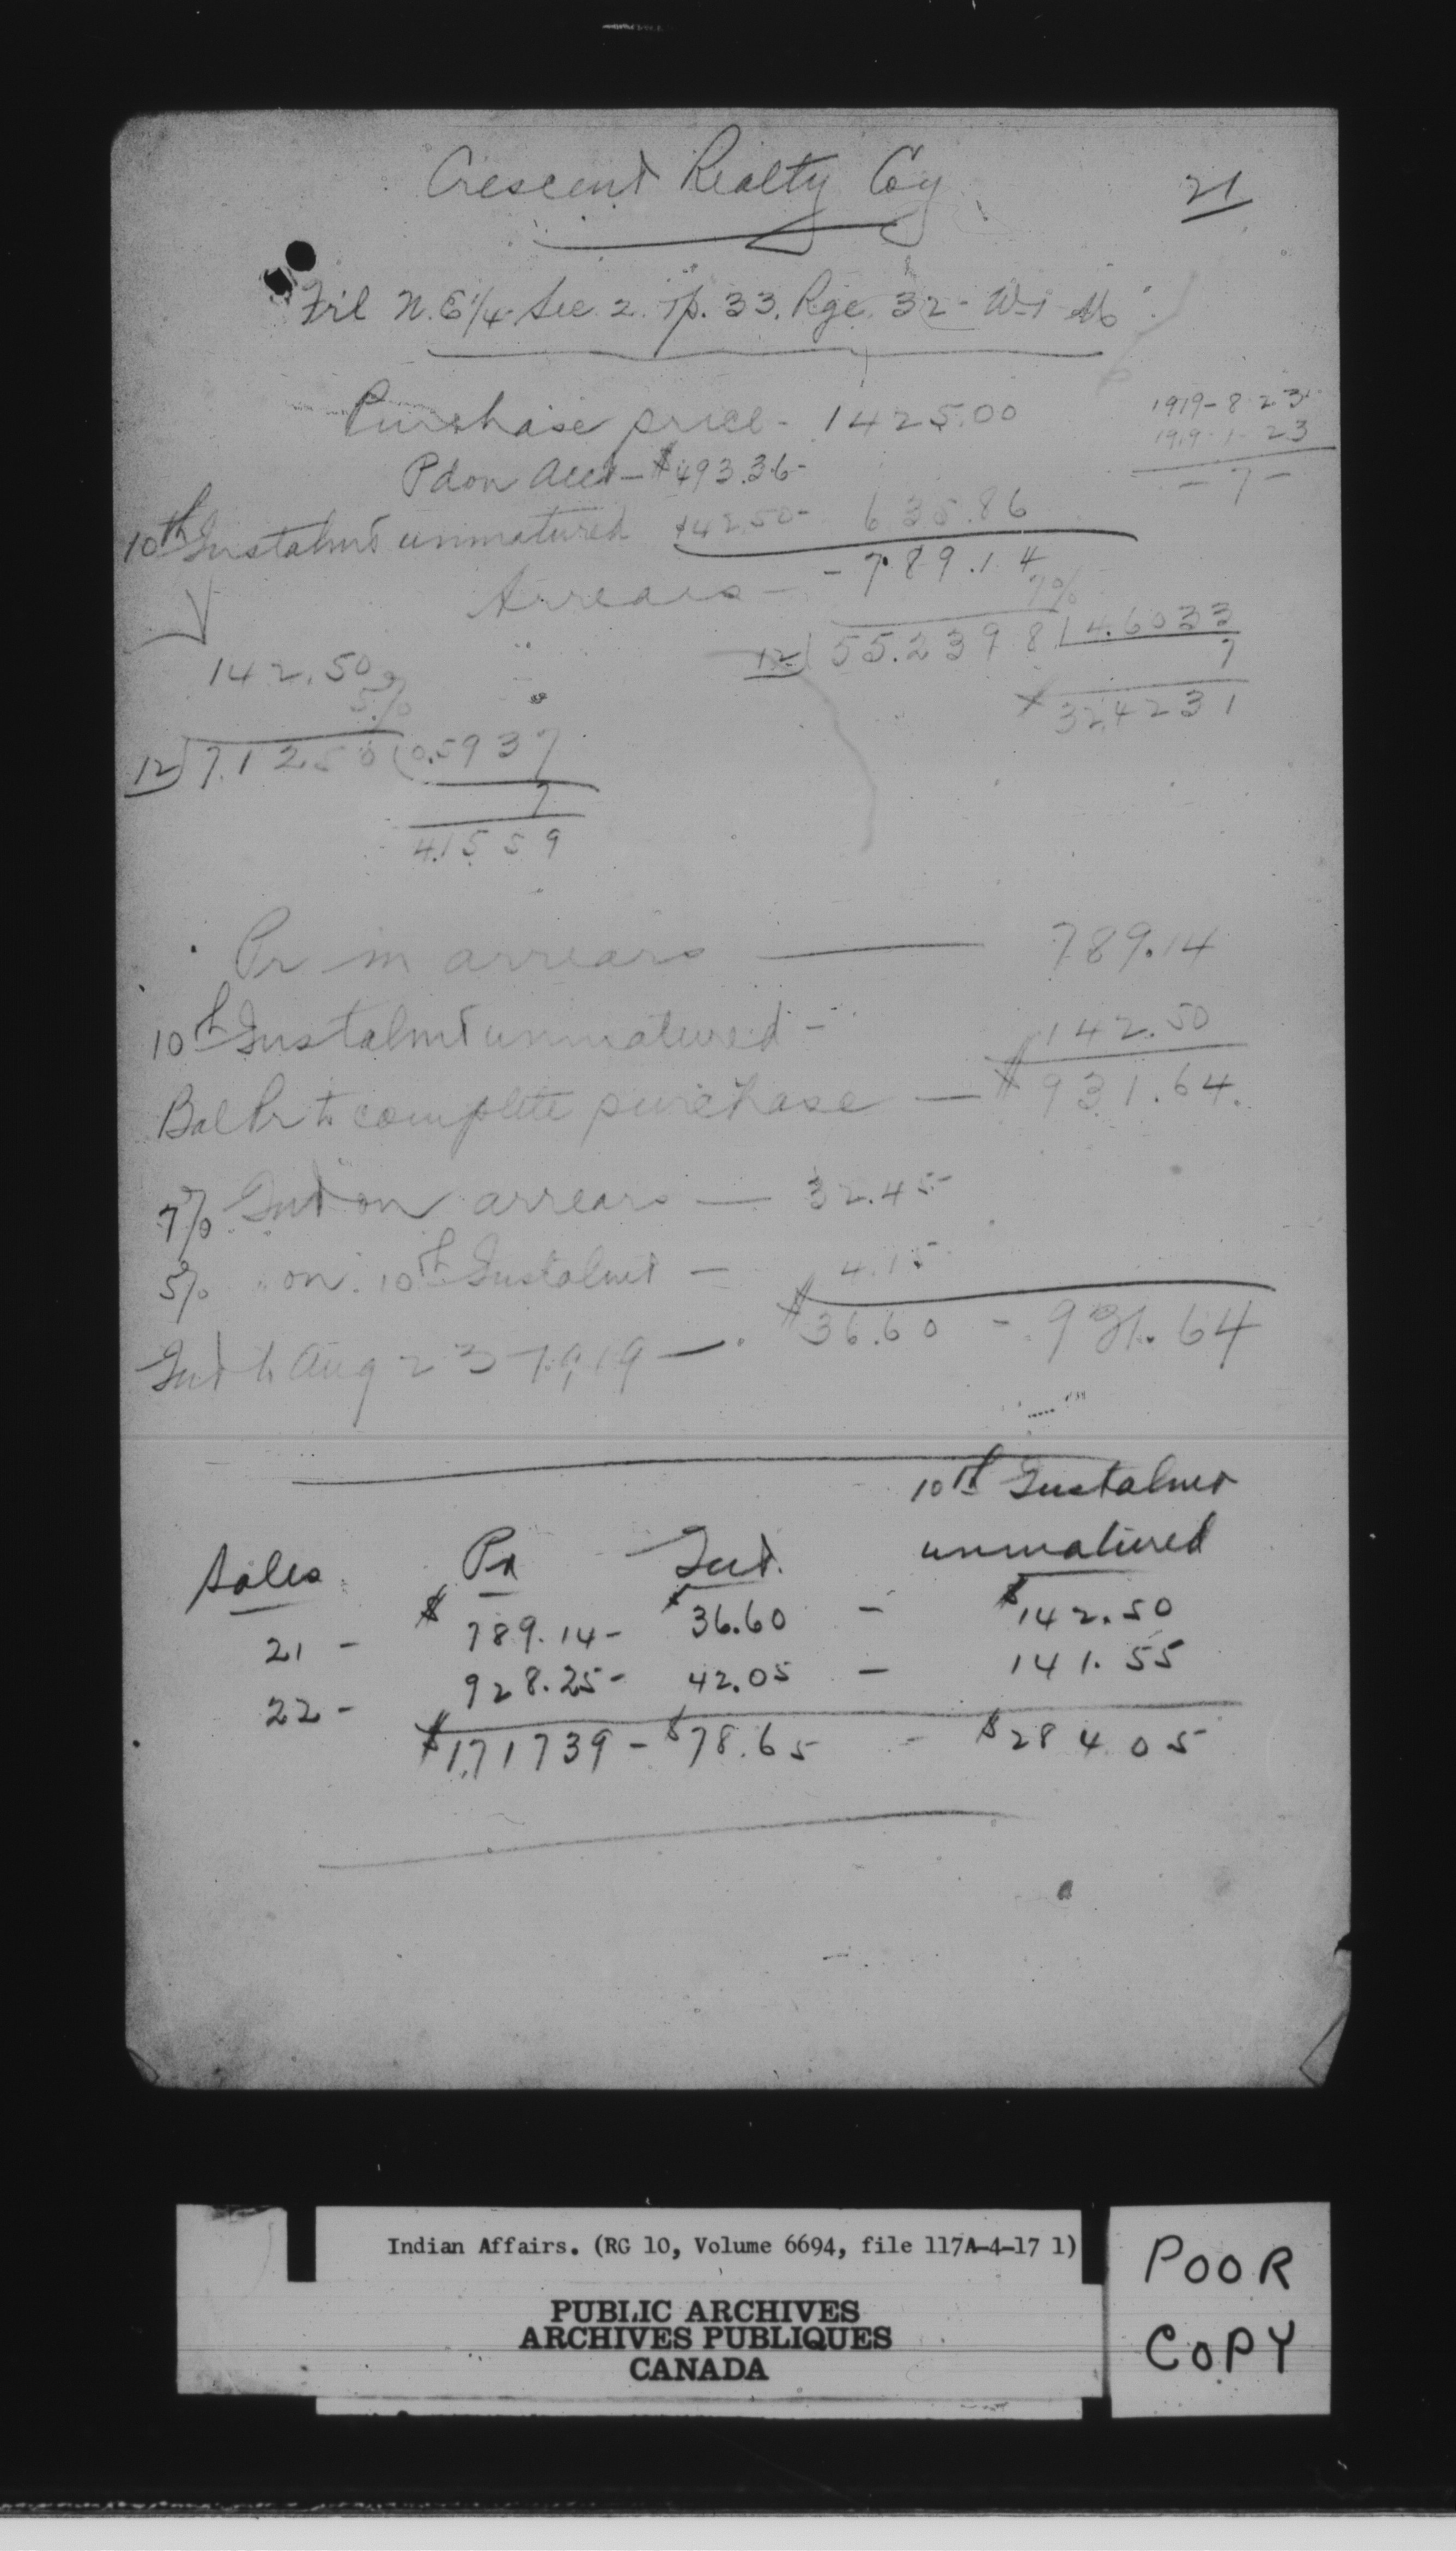 Crescent Realty Coy
21
Frl N.E 1/4 Sec. 2. Tp. 33. Rge. 32 - W-1-M
Purchase price - 1425.00
1919 - 8 - 23
1919 - 1 - 23
- 7 -
Pd on Acct - $493.36 -
10th Instalmt unmatured 142.50 - 635.86
Arrears - - 789.14
7%
12) 55.2398 | 4.6033
7
$ 324231
142.50
5%
12) 7.1250 (0.5937
7
4.1559
Pr in arrears — 789.14
10th Instalmt unmatured - 142.50
Bal Pr to complete purchase — $931.64.
7% Int on arrears — 32.45
5% " on 10th Instalmt — 4.15
Int to Aug 23 - 1919 — $36.60 - 931.64
10th Instalmt
Sales Pr Int. unmatured
21 - $789.14 - $36.60 - $142.50
22 - 928.25 - 42.05 - 141.55
$1,71739 - $78.65 - $284.05
Indian Affairs. (RG 10, Volume 6694, file 117A-4-17 1)
PUBLIC ARCHIVES
ARCHIVES PUBLIQUES
CANADA
POOR
COPY